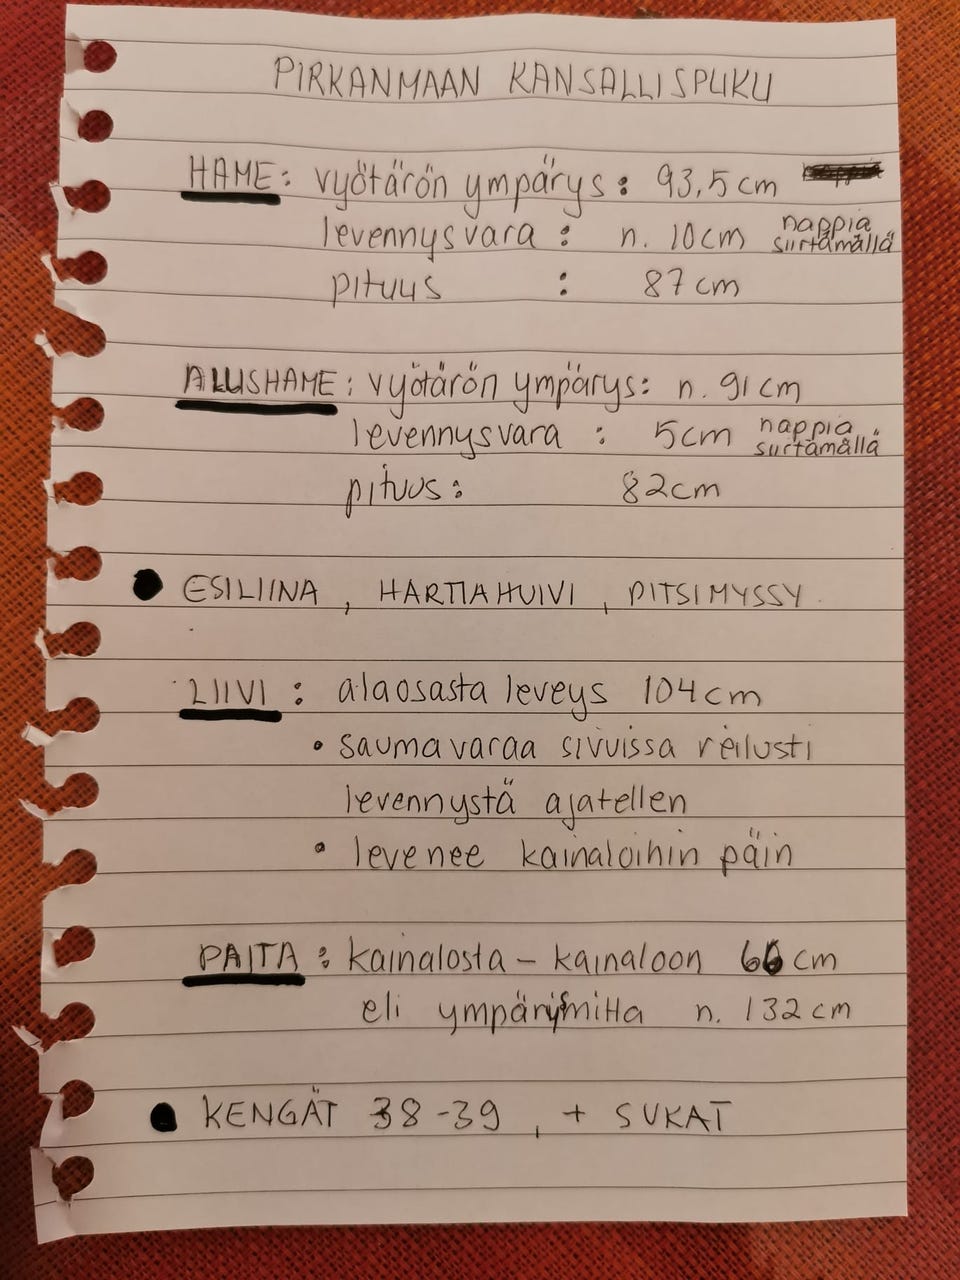 PIRKANMAAN KANSALLISPUKU
HAME: vyötärön ympärys: 93,5 cm
levennysvara : n. 10cm nappia siirtämällä
pituus : 87 cm
ALUSHAME: vyötärön ympärys: n. 91 cm
levennysvara : 5cm nappia siirtämällä
pituus: 82cm
● ESILIINA, HARTIAHUIVI, PITSIMYSSY
LIIVI: alaosasta leveys 104 cm
• saumavaraa sivuissa reilusti
levennystä ajatellen
• levenee kainaloihin päin
PAITA: kainalosta - kainaloon 66 cm
eli ympärysmitta n. 132 cm
● KENGÄT 38-39, + SUKAT